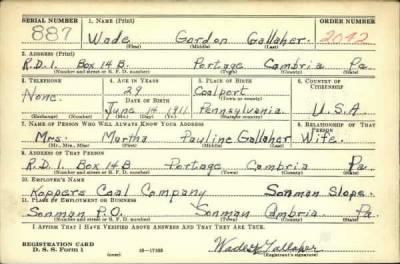 SERIAL NUMBER 1. NAME (Print) ORDER NUMBER
887 Wade Gordon Gallaher 2042
(First) (Middle) (Last)
2. ADDRESS (Print)
R.D.1. Box 14B. Portage Cambria Pa.
(Number and street or R. F. D. number) (Town) (County) (State)
3. TELEPHONE 4. AGE IN YEARS 5. PLACE OF BIRTH 6. COUNTRY OF CITIZENSHIP
None. 29 Coalport
DATE OF BIRTH (Town or county)
June 14 1911 Pennsylvania U.S.A.
(Exchange) (Number) (Mo.) (Day) (Yr.) (State or country)
7. NAME OF PERSON WHO WILL ALWAYS KNOW YOUR ADDRESS 8. RELATIONSHIP OF THAT PERSON
Mrs. Martha Pauline Gallaher Wife.
(Mr., Mrs., Miss) (First) (Middle) (Last)
9. ADDRESS OF THAT PERSON
R.D.1. Box 14B Portage Cambria Pa.
(Number and street or R. F. D. number) (Town) (County) (State)
10. EMPLOYER'S NAME
Koppers Coal Company Sonman Slope.
11. PLACE OF EMPLOYMENT OR BUSINESS
Sonman P.O. Sonman Cambria Pa.
(Number and street or R. F. D. number) (Town) (County) (State)
I AFFIRM THAT I HAVE VERIFIED ABOVE ANSWERS AND THAT THEY ARE TRUE.
REGISTRATION CARD
D. S. S. Form 1 (over) 16—17105 Wade G Gallaher
(Registrant's signature)